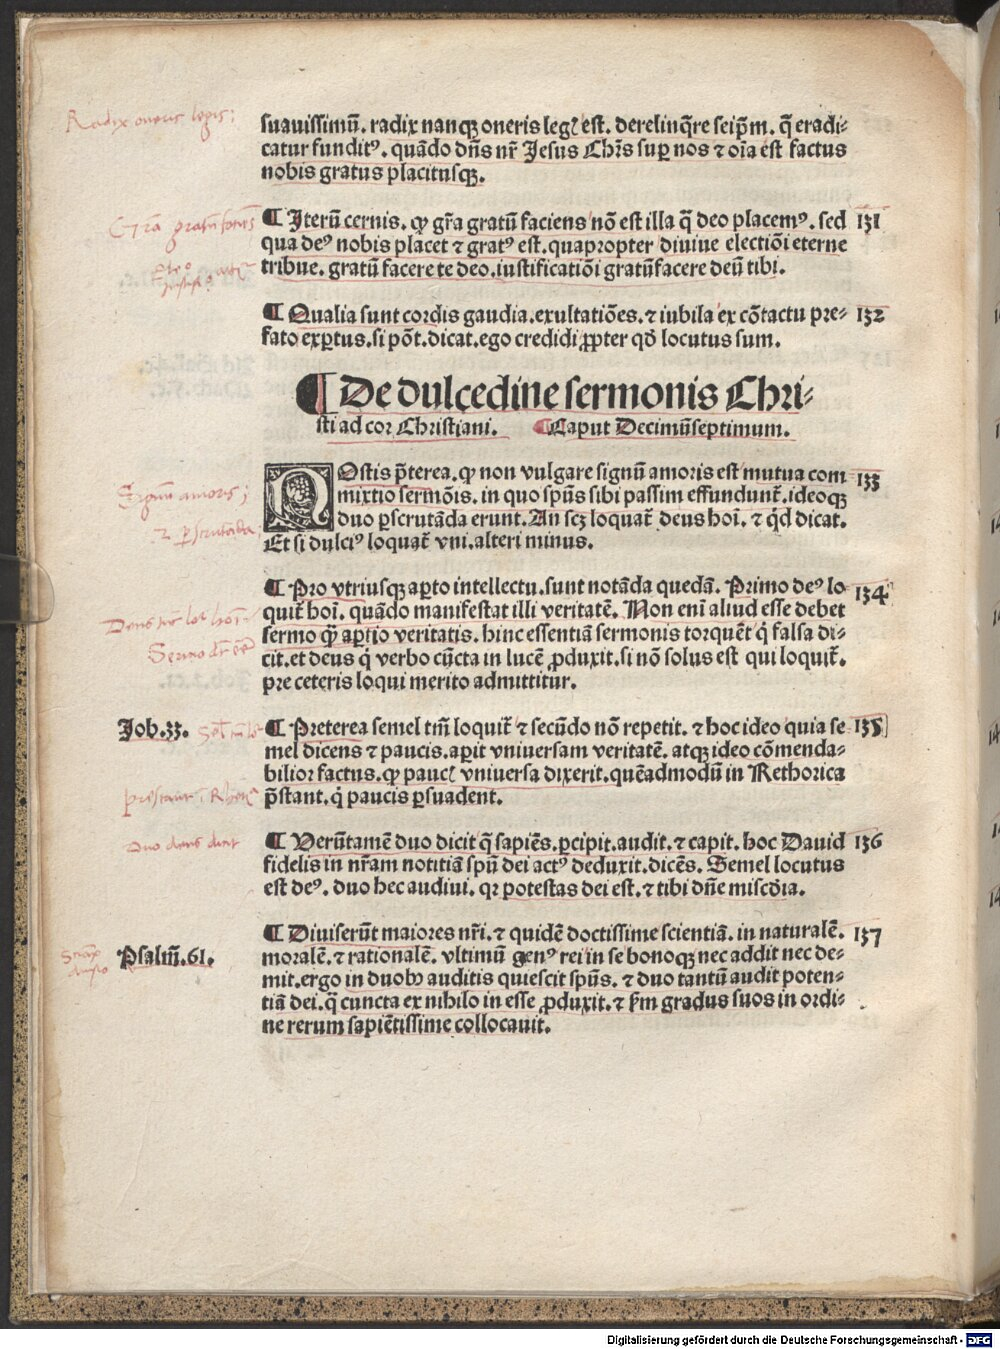 Radix oneris legis;
suauissimũ. radix nanqꝫ oneris legꝭ est. derelinq̃re seip̃m. q̃ eradi-
catur funditꝰ. quãdo dñs nr̃ Jesus Chr̃s sup nos ⁊ oĩa est factus
nobis gratus placitusqꝫ.
¶ Iterũ cernis. ꝙ gr̃a gratũ faciens nõ est illa q̃ deo placemꝰ. sed 131
qua deꝰ nobis placet ⁊ gratꝰ est. quapropter diuine electiõi eterne
tribue. gratũ facere te deo. iustificatiõi gratũ facere deũ tibi.
¶ Qualia sunt cordis gaudia. exultatiões. ⁊ iubila ex cõtactu pre- 132
fato exptus. si põt. dicat. ego credidi ꝓpter qđ locutus sum.
¶ De dulcedine sermonis Chri-
sti ad cor Christiani. ¶ Caput Decimũseptimum.
QOstis p̃terea. ꝙ non vulgare signũ amoris est mutua com 133
mixtio sermõis. in quo spũs sibi passim effundunt̃. ideoqꝫ
duo ꝑscrutãda erunt. An scꝫ loquat̃ deus hoĩ. ⁊ qđ dicat.
Et si dulciꝰ loquat̃ vni. alteri minus.
Signũ amoris;
¶ Pro vtriusqꝫ apto intellectu. sunt notãda quedã. Primo deꝰ lo 134
quit̃ hoĩ. quãdo manifestat illi veritatẽ. Non enĩ aliud esse debet
sermo q̃ꝫ aptio veritatis. hinc essentiã sermonis torquẽt q̇ falsa di-
cit. et deus q̇ verbo cũcta in lucẽ ꝓduxit. si nõ solus est qui loquit̃.
pre ceteris loqui merito admittitur.
Job.33.
¶ Preterea semel tm̃ loquit̃ ⁊ secũdo nõ repetit. ⁊ hoc ideo quia se 135
mel dicens ⁊ paucis. apit vniuersam veritatẽ. atqꝫ ideo cõmenda-
bilior factus. ꝙ paucꝭ vniuersa dixerit. quẽadmodũ in Rethorica
p̃stant. q̇ paucis ꝑsuadent.
¶ Verũtamẽ duo dicit q̃ sapiẽs. ꝑcipit. audit. ⁊ capit. hoc Dauid 136
fidelis in nr̃am notitiã spũ dei actꝰ deduxit. dicẽs. Semel locutus
est deꝰ. duo hec audiui. qꝛ potestas dei est. ⁊ tibi dñe mi͠scđia.
Psalm̃.61.
¶ Diuiserũt maiores nr̃i. ⁊ quidẽ doctissime scientiã. in naturalẽ. 137
moralẽ. ⁊ rationalẽ. vltimũ genꝰ rei in se bonoqꝫ nec addit nec de-
mit. ergo in duobꝰ auditis quiescit spũs. ⁊ duo tantũ audit poten-
tiã dei. q̃ cuncta ex nihilo in esse ꝓduxit. ⁊ ẜm gradus suos in ordi-
ne rerum sapiẽtissime collocauit.
Digitalisierung gefördert durch die Deutsche Forschungsgemeinschaft - DFG